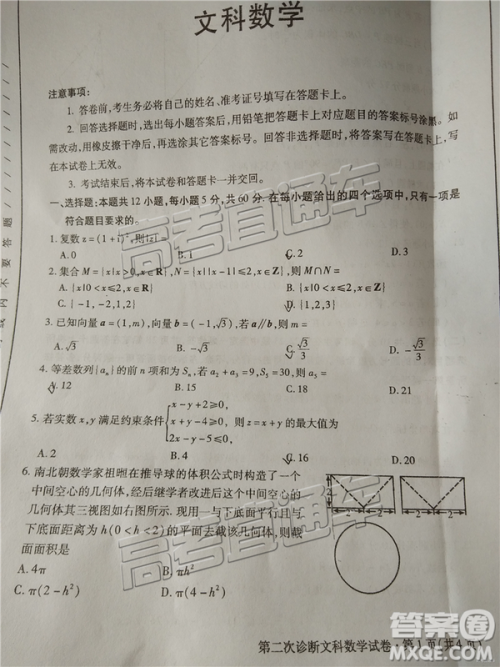 文科数学
注意事项:
1. 答卷前,考生务必将自己的姓名、准考证号填写在答题卡上。
2. 回答选择题时,选出每小题答案后,用铅笔把答题卡上对应题目的答案标号涂黑。如
需改动,用橡皮擦干净后,再选涂其它答案标号。回答非选择题时,将答案写在答题卡上,写
在本试卷上无效。
3. 考试结束后,将本试卷和答题卡一并交回。
一、选择题:本题共12小题,每小题5分,共60分.在每小题给出的四个选项中,只有一项是
符合题目要求的。
1. 复数z=(1+i)²,则|z|=
A. 0 B. 1 C. 2 D. 3
2. 集合M={x|x>0,x∈R},N={x||x-1|≤2,x∈Z},则M∩N=
A. {x|0<x≤2,x∈R} B. {x|0<x≤2,x∈Z}
C. {-1,-2,1,2} D. {1,2,3}
3. 已知向量a=(1,m),向量b=(-1,√3),若a∥b,则m=
A. √3 B. -√3 C. √3/3 D. -√3/3
4. 等差数列{aₙ}的前n项和为Sₙ,若a₂+a₃=9,S₅=30,则a₅=
A. 12 B. 15 C. 18 D. 21
5. 若实数x,y满足约束条件{x-y+2≥0, x+y-4≥0, 2x-y-5≤0,则z=x+y的最大值为
A. 2 B. 4 C. 16 D. 20
6. 南北朝数学家祖暅在推导球的体积公式时构造了一个
中间空心的几何体,经后继学者改进后这个中间空心的
几何体其三视图如右图所示.现用一与下底面平行且与
下底面距离为h(0<h<2)的平面去截该几何体,则截
面面积是
2 2 2 2
A. 4π B. πh²
C. π(2-h²) D. π(4-h²)
第二次诊断文科数学试卷 第1页(共4页)
高考直通车
高考直通车
答案圈
MXQE.COM